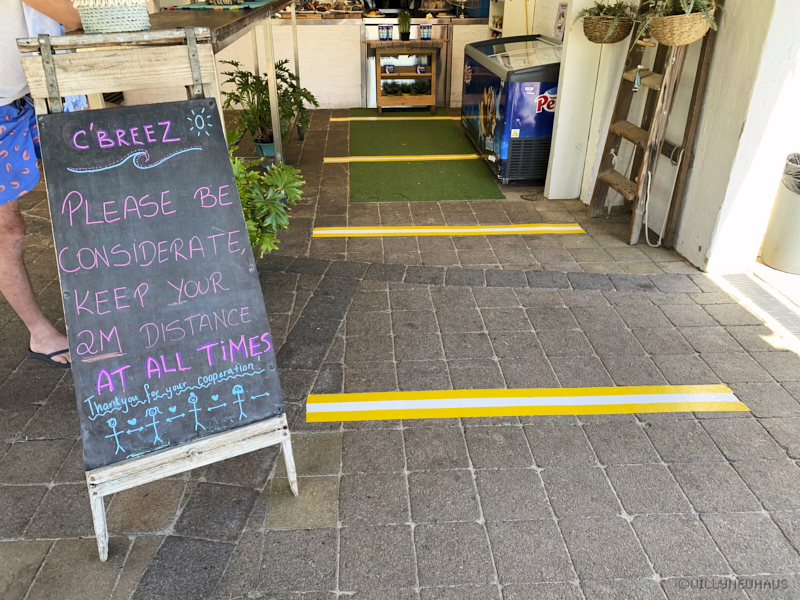 C'BREEZ
PLEASE BE
CONSIDERATE,
KEEP YOUR
2M DISTANCE
AT ALL TIMES
Thankyou for your cooperation
Pe
©WILLYNEUHAUS